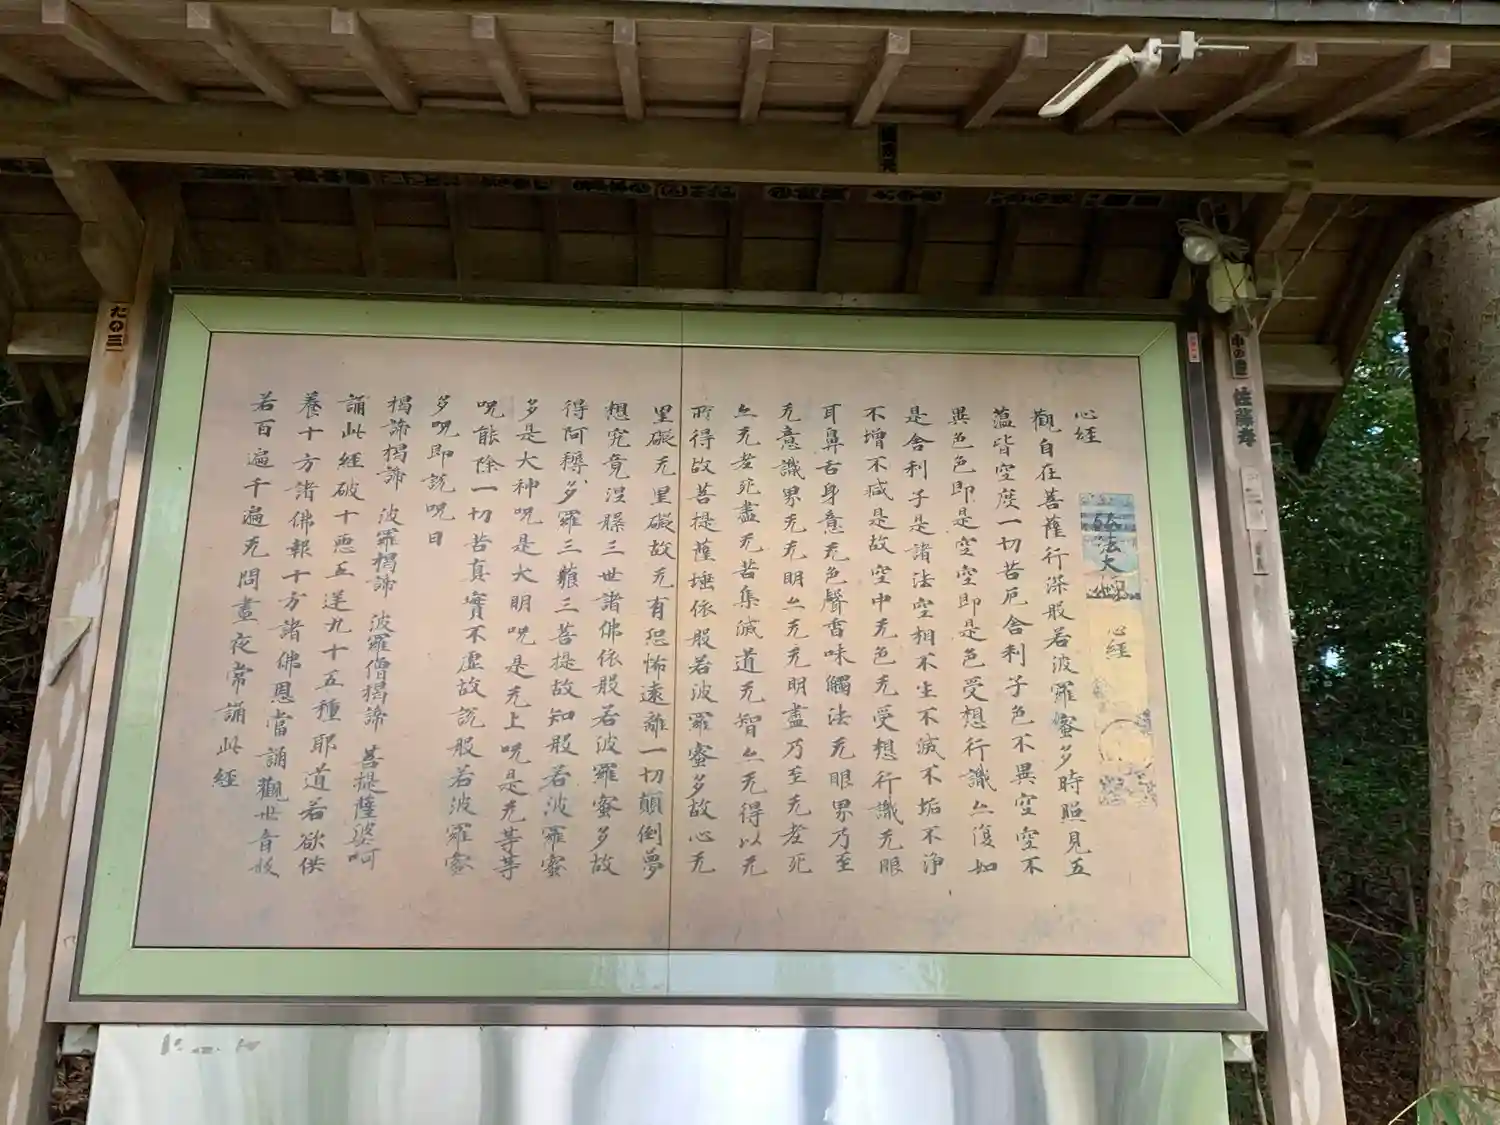 弘法大師
心経
心経
觀自在菩薩行深般若波羅蜜多時照見五
蘊皆空度一切苦厄舍利子色不異空空不
異色色即是空空即是色受想行識亦復如
是舍利子是諸法空相不生不滅不垢不浄
不增不減是故空中无色无受想行識无眼
耳鼻舌身意无色聲香味觸法无眼界乃至
无意識界无无明亦无无明盡乃至无老死
亦无老死盡无苦集滅道无智亦无得以无
所得故菩提薩埵依般若波羅蜜多故心无
罣礙无罣礙故无有恐怖遠離一切顛倒夢
想究竟涅槃三世諸佛依般若波羅蜜多故
得阿耨多羅三藐三菩提故知般若波羅蜜
多是大神呪是大明呪是无上呪是无等等
呪能除一切苦真實不虛故說般若波羅蜜
多呪即說呪曰
揭諦揭諦 波羅揭諦 波羅僧揭諦 菩提薩婆呵
誦此経破十惡五逆九十五種耶道若欲供
養十方諸佛報十方諸佛恩當誦觀世音般
若百遍千遍无問晝夜常誦此経
佐藤孝
たの三